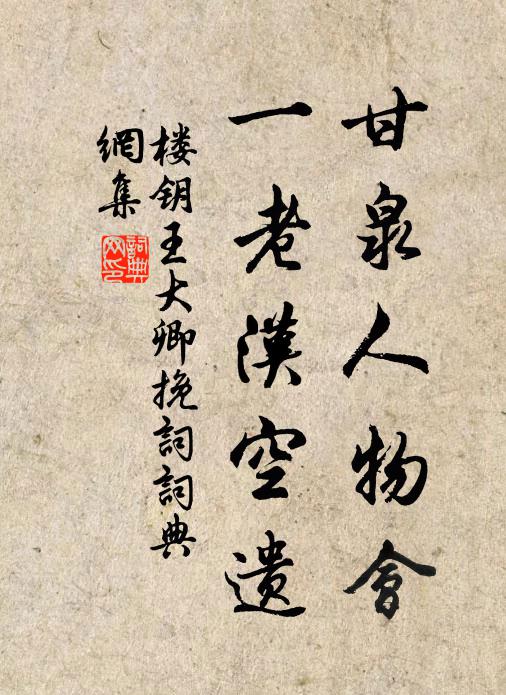 甘泉人物會
一老漢空遺
楼钥王大卿挽詞詞典
網集
詞典网印